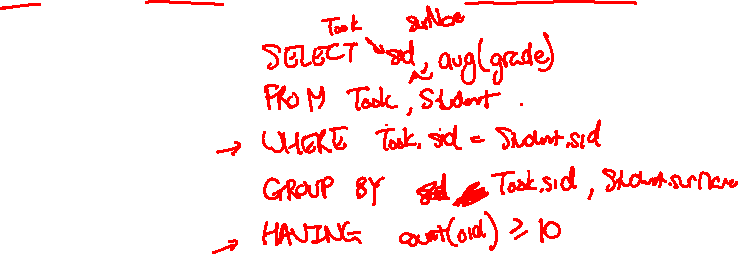 Took surName
SELECT sid, avg(grade)
FROM Took, Student.
→ WHERE Took.sid = Student.sid
GROUP BY Took.sid, Student.surName
→ HAVING count(oid) ≥ 10